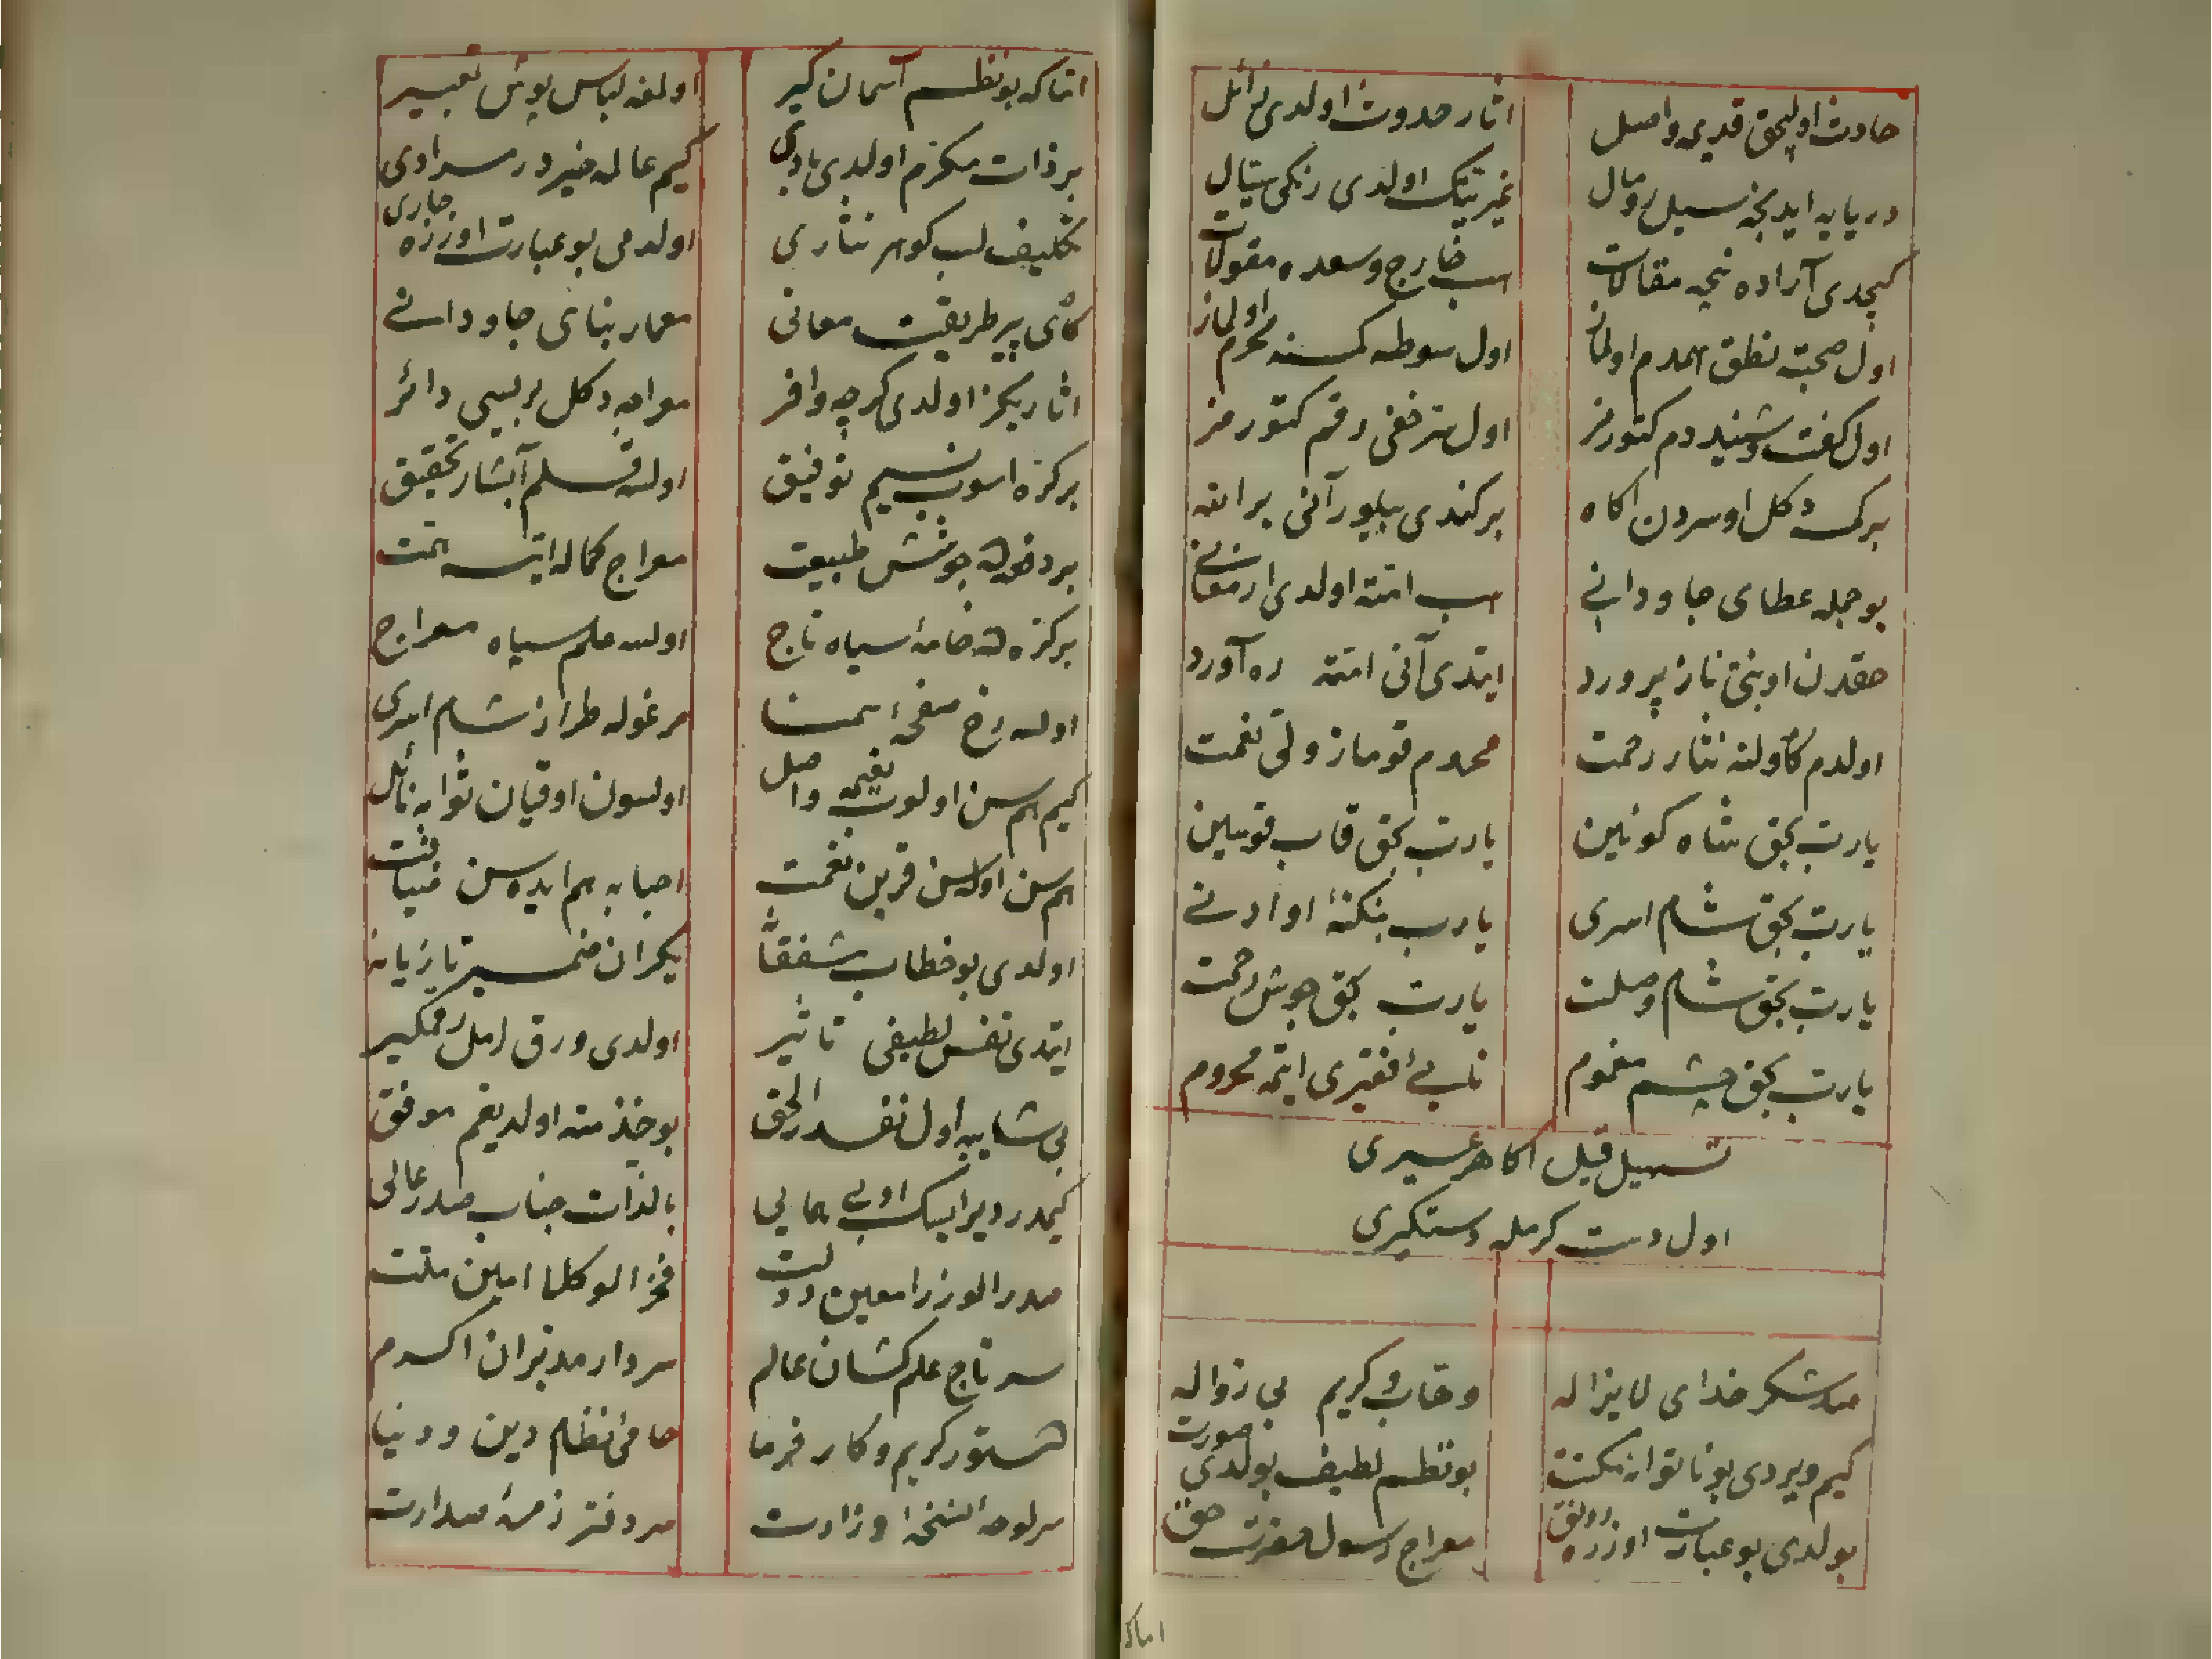 حادث اولیجق قدیمه واصل
اثار حدوث اولدی زائل
دریایه ایدیجه سیل رومال
غیریتک اولدی رنکی سیال
کچدی آراده نیجه مقالات
هب خارج وسعده مقولات
اول صحبته نطق همدم اولماز
اول سوطه کمسنه محرم اولماز
اول کفت وشنیددم کتورمز
اول سر خفی رقم کتورمز
برکس دکل اوسردن اکاه
برکندی بیلور آنی بر الله
بوجمله عطای جاودانی
هب امته اولدی ارمغانی
حقدن اوبنی ناز پرورد
ایتدی آنی امته ره آورد
اولدم که اولنه نثار رحمت
محروم قوماز ولی نعمت
یارب بحق شاه کونین
یارب بحق قاب قوسین
یارب بحق شام اسری
یارب بنکتهٔ او ادنی
یارب بحق شام وصلت
یارب بحق جوش رحمت
یارب بحق چشم مغموم
نابیٔ فقیری ایتمه محروم
تسهیل قیل اکا هر عسیری
اول دست کرمله دستکیری
صد شکر خدای لایزاله
وهاب وکریم بی زواله
کیم ویردی بوناتوانه مکنت
بونظم لطیف بولدی صورت
بولدی بوعبارت اوزره رونق
معراج رسول حضرت حق
اماکه
اماکه بونظم آسمان کیر
اولمه لباس پوش تعبیر
برذات مکرم اولدی بادی
کیم عالمه خیردر مرادی
تکلیف لب کوهر نثاری
اولدمی بوعبارت اوزره جاری
کای پیر طریقت معانی
معمار بنای جاودانی
اثاریکز اولدی کرچه وافر
معراجه دکل بریسی دائر
برکره اسوب نسیم توفیق
اولسه قلم آبشار تحقیق
بردخی جوشش طبیعت
معراج کماله ایتسه همت
برکره خامهٔ سیاه تاج
اولسه علم سیاه معراج
اولسه رخ صفحهٔ سمنسا
مرغوله طراز شام اسری
کیم هم سن اولوب نعیمه واصل
اولسون اوقیان ثوابه نائل
هم سن اوله سن قرین نعمت
احبابه هم ایده سن ضیافت
اولدی بوخطاب مشفقانه
یکران ضمیره تازیانه
ایتدی نفس لطیفی تاثیر
اولدی ورق امل رقمکیر
بی شایبه اول نفسدر الحق
بوخذمته اولدیغم موفق
کیمدر دیر ایسک اوبی همالی
بالذات جناب صدر عالی
صدر الوزرا معین دولت
فخر الوکلا امین ملت
سرتاج علم کشان عالم
سردار مدبران اکرم
دستور کریم وکارفرما
حامیٔ نظام دین ودنیا
سرلوحهٔ نسخهٔ وزارت
سردفتر زمرهٔ صدارت